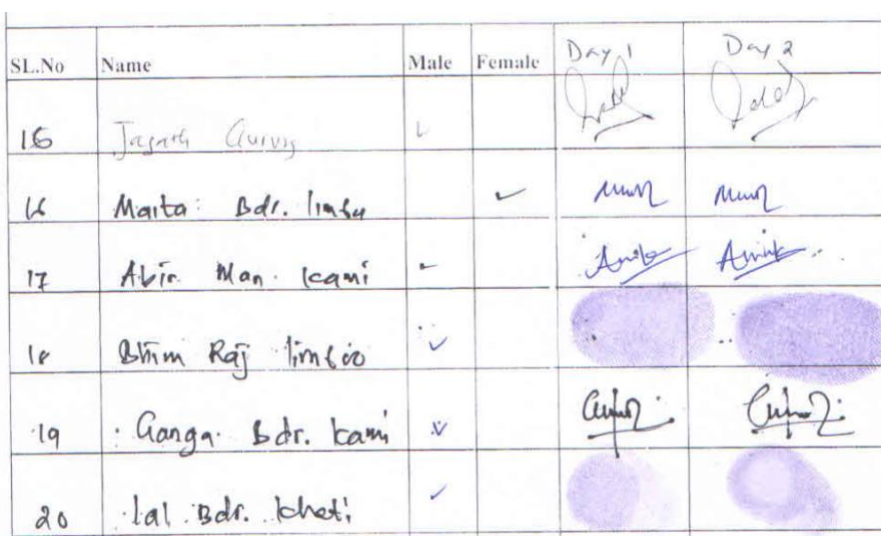 SL.No Name Male Female Day 1 Day 2
16 Jagath Gurung ✓
16 Maita Bdr. limbu ✓
17 Abir Man kami ✓
18 Bhim Raj limboo ✓
19 Ganga Bdr. kami ✓
20 lal Bdr. kheti ✓